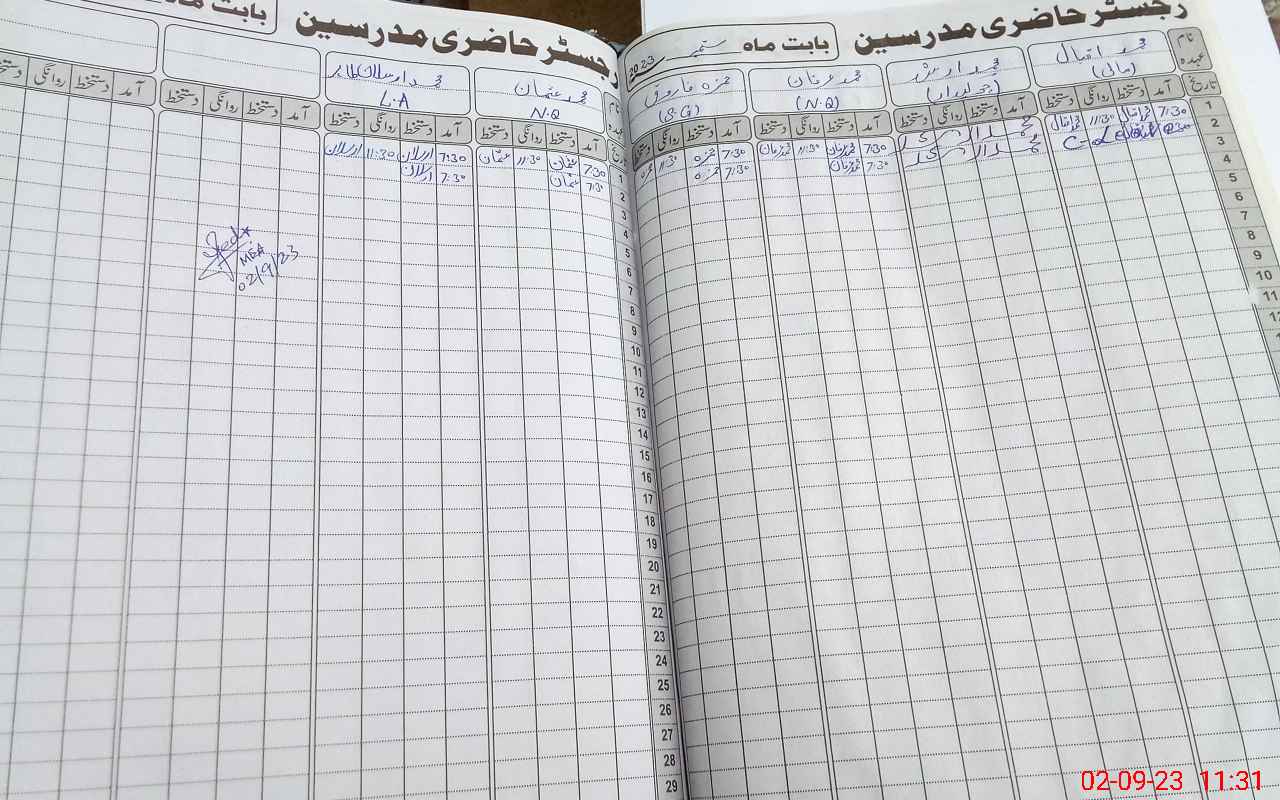 رجسٹر حاضری مدرسین
بابت ماہ ستمبر 2023
نام
عہدہ
محمد اقبال
(مالی)
محمد عرفان
(N.Q)
حمزہ فاروق
(S.G)
تاریخ
آمد دستخط روانگی دستخط
آمد دستخط روانگی دستخط
آمد دستخط روانگی دستخط
آمد دستخط روانگی دستخط
1
7:30 اقبال 11:30 اقبال
7:30 عرفان 11:30 عرفان
7:30 حمزہ 11:30 حمزہ
2
C-Leave
7:30 عرفان
7:30 حمزہ
3
4
5
6
7
8
9
10
11
12
رجسٹر حاضری مدرسین
بابت ماہ
نام
عہدہ
محمد عثمان
N.Q
محمد ارسلان طاہر
L.A
تاریخ
آمد دستخط روانگی دستخط
آمد دستخط روانگی دستخط
آمد دستخط روانگی دستخط
آمد دستخط روانگی دستخط
1
7:30 عثمان 11:30 عثمان
7:30 ارسلان 11:30 ارسلان
2
7:30 عثمان
7:30 ارسلان
3
4
5
6
7
8
9
10
11
12
13
14
15
16
17
18
19
20
21
22
23
24
25
26
27
28
29
MEA
02/9/23
02-09-23 11:31